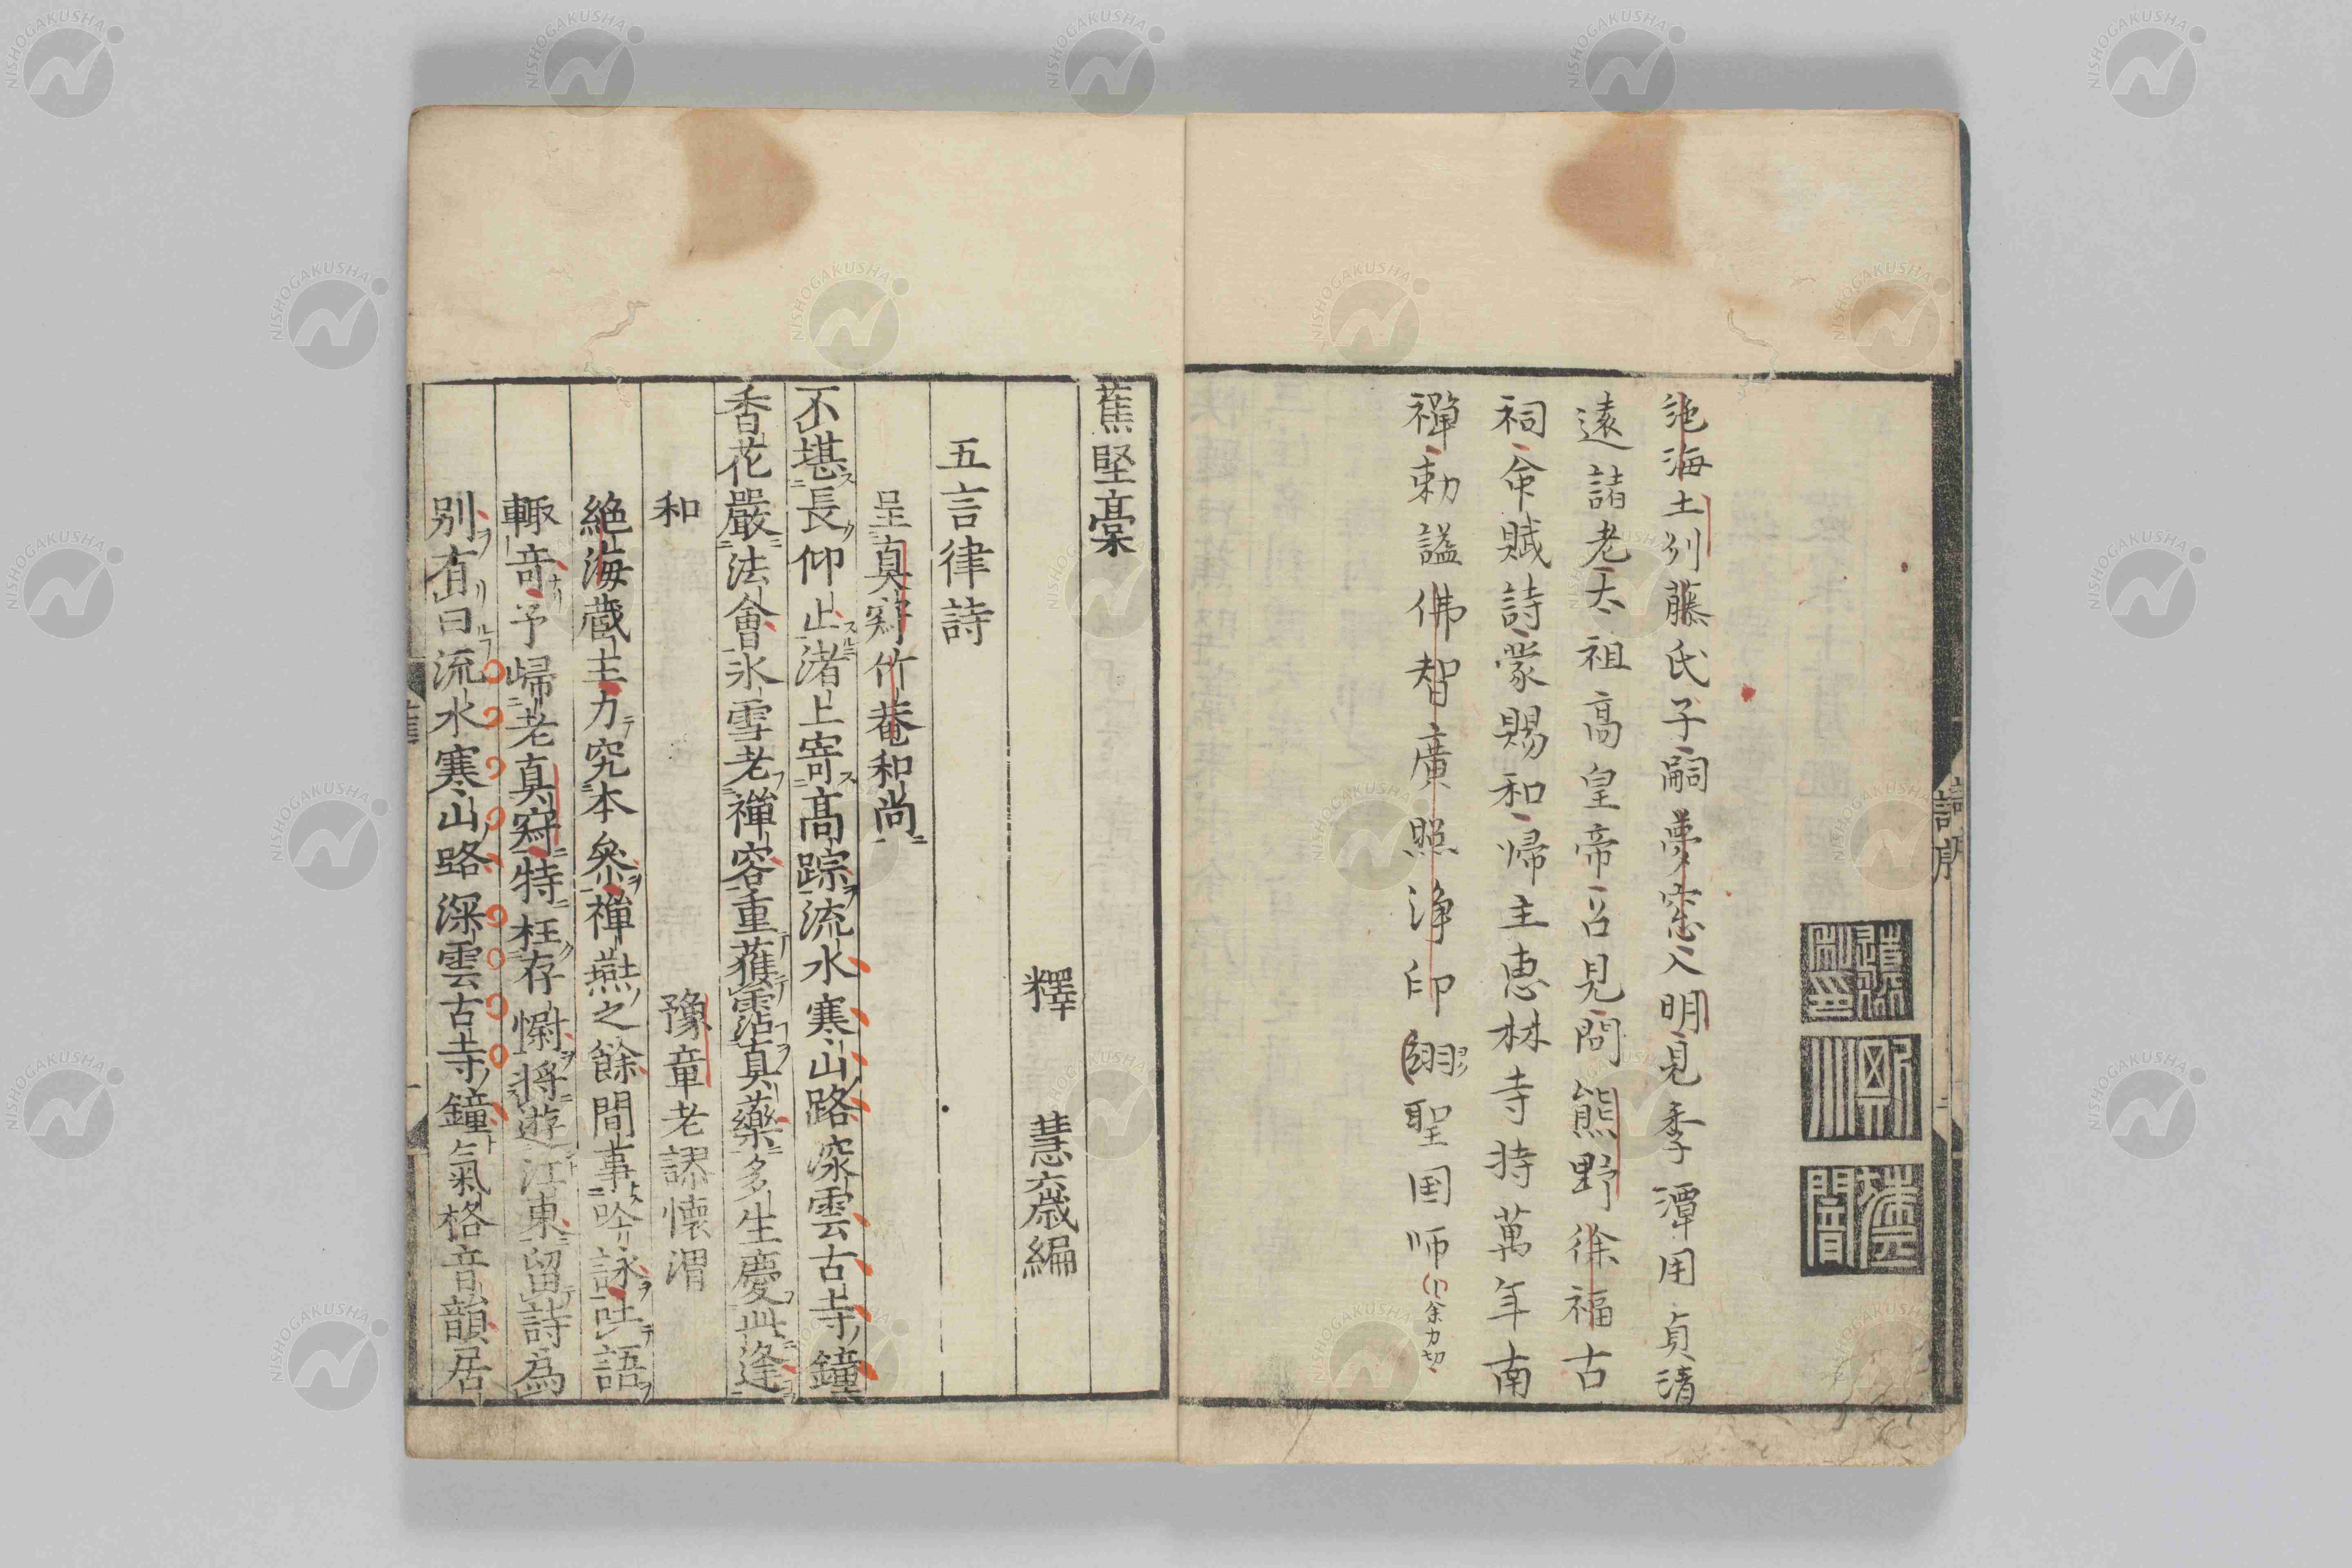 絶海土列藤氏子嗣夢窓入明見季潭用貞清
遠諸老太祖高皇帝召見問熊野徐福古
祠命賦詩蒙賜和歸主惠林寺持萬年南
禅勅諡佛智廣照浄印翊聖国師
詩序
蕉堅稾
釋 慧𡻕編
五言律詩
呈真寂竹菴和尚
不堪長仰止渚上寄高踪流水寒山路深雲古寺鐘
香花嚴法會氷雪老禅容重獲霑真藥多生慶此逢
和 豫章老謬懷渭
絶海蔵主力究本参禅燕之餘間事吟詠吐語
輙竒予歸老真寂特枉存慰将遊江東留詩為
别有曰流水寒山路深雲古寺鐘氣格音韻居